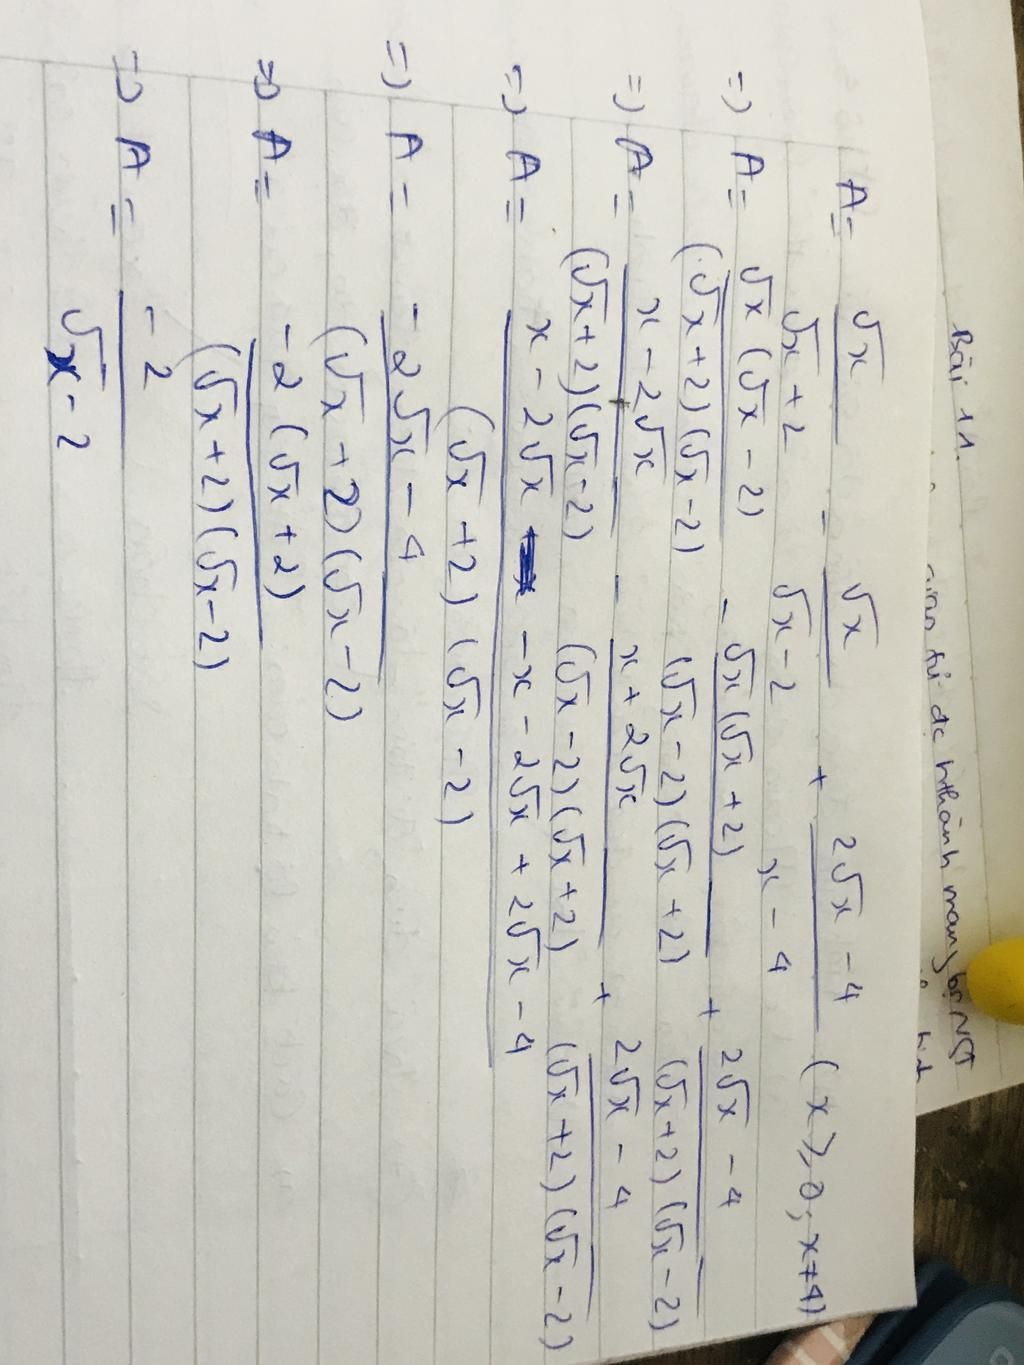 Bài 11.
A = √x/(√x + 2) - √x/(√x - 2) + (2√x - 4)/(x - 4) (x ≥ 0; x ≠ 4)
=> A = √x(√x - 2)/(√x + 2)(√x - 2) - √x(√x + 2)/(√x - 2)(√x + 2) + (2√x - 4)/(√x + 2)(√x - 2)
=> A = (x - 2√x)/(√x + 2)(√x - 2) - (x + 2√x)/(√x - 2)(√x + 2) + (2√x - 4)/(√x + 2)(√x - 2)
=> A = (x - 2√x - x - 2√x + 2√x - 4)/(√x + 2)(√x - 2)
=> A = (-2√x - 4)/(√x + 2)(√x - 2)
=> A = -2(√x + 2)/(√x + 2)(√x - 2)
=> A = -2/(√x - 2)